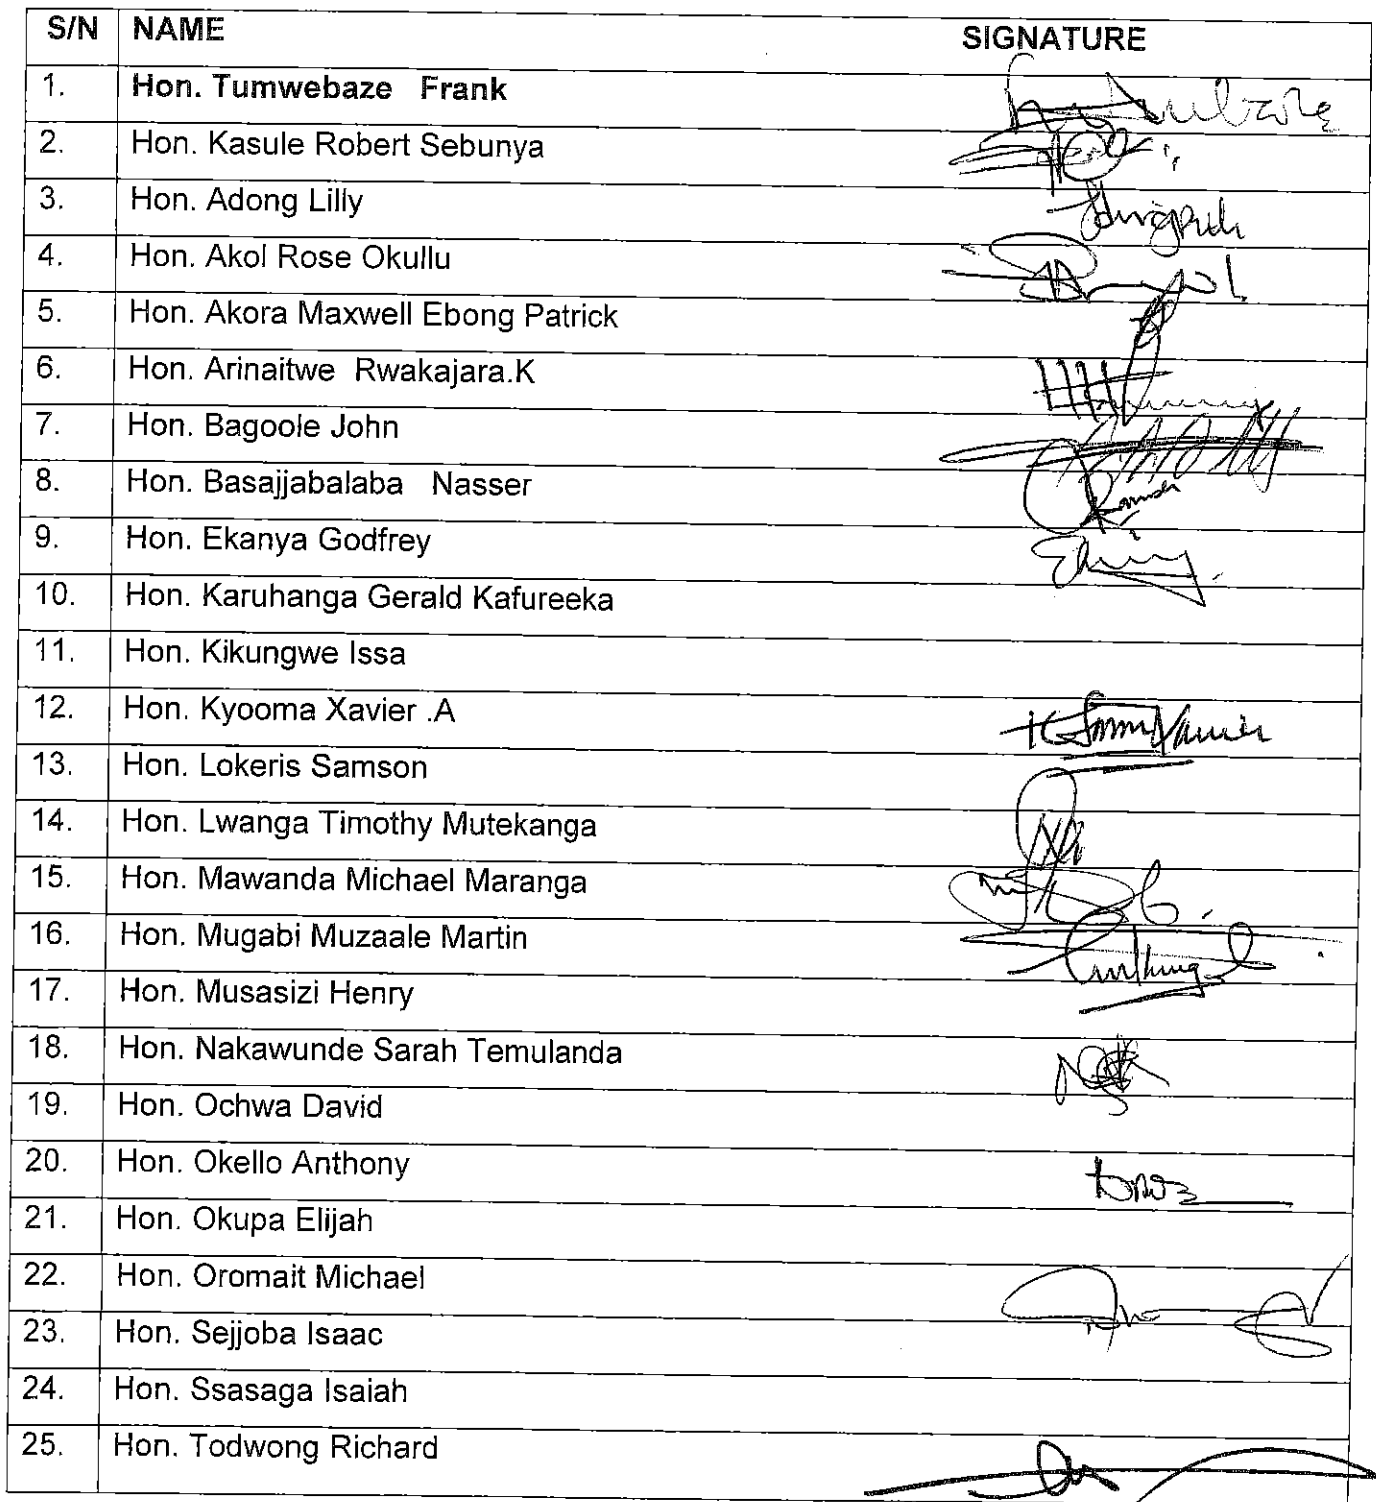 S/N NAME SIGNATURE
1. Hon. Tumwebaze Frank
2. Hon. Kasule Robert Sebunya
3. Hon. Adong Lilly
4. Hon. Akol Rose Okullu
5. Hon. Akora Maxwell Ebong Patrick
6. Hon. Arinaitwe Rwakajara.K
7. Hon. Bagoole John
8. Hon. Basajjabalaba Nasser
9. Hon. Ekanya Godfrey
10. Hon. Karuhanga Gerald Kafureeka
11. Hon. Kikungwe Issa
12. Hon. Kyooma Xavier .A
13. Hon. Lokeris Samson
14. Hon. Lwanga Timothy Mutekanga
15. Hon. Mawanda Michael Maranga
16. Hon. Mugabi Muzaale Martin
17. Hon. Musasizi Henry
18. Hon. Nakawunde Sarah Temulanda
19. Hon. Ochwa David
20. Hon. Okello Anthony
21. Hon. Okupa Elijah
22. Hon. Oromait Michael
23. Hon. Sejjoba Isaac
24. Hon. Ssasaga Isaiah
25. Hon. Todwong Richard